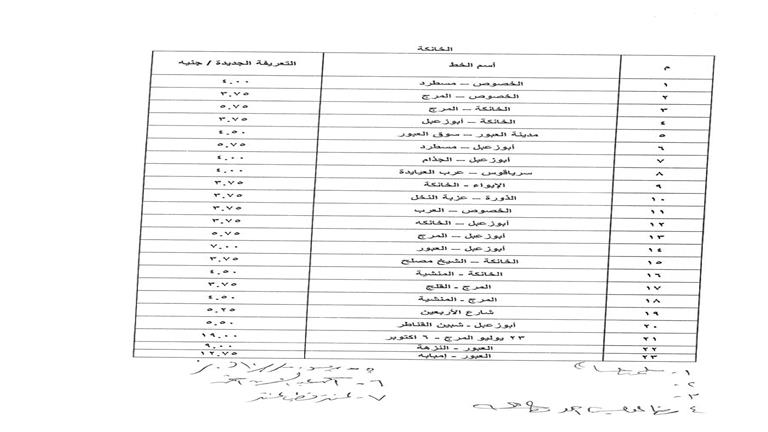 الخانكة
م	أسم الخط	التعريفة الجديدة / جنيه
١	الخصوص – مسطرد	٤,٠٠
٢	الخصوص – المرج	٣,٧٥
٣	الخانكة – المرج	٥,٧٥
٤	الخانكة – أبوزعبل	٣,٧٥
٥	مدينة العبور – سوق العبور	٤,٥٠
٦	أبوزعبل – مسطرد	٥,٧٥
٧	أبوزعبل – الجذام	٤,٠٠
٨	سرياقوس – عرب العيايدة	٤,٠٠
٩	الإيواء - الخانكة	٣,٧٥
١٠	الذورة – عزبة النخل	٣,٧٥
١١	الخصوص – العرب	٣,٧٥
١٢	أبوزعبل – الخانكه	٣,٧٥
١٣	أبوزعبل – المرج	٥,٧٥
١٤	أبوزعبل – العبور	٧,٠٠
١٥	الخانكة – الشيخ مصلح	٣,٧٥
١٦	الخانكة - المنشية	٤,٥٠
١٧	المرج - القلج	٣,٧٥
١٨	المرج - المنشية	٤,٥٠
١٩	شارع الأربعين	٥,٢٥
٢٠	أبوزعبل - شبين القناطر	٥,٥٠
٢١	٢٣ يوليو المرج - ٦ اكتوبر	١٩,٠٠
٢٢	العبور - النزهة	٩,٠٠
٢٣	العبور - إمبابه	١٢,٧٥
١-
٢-
٣-
٤
٥-
٦-
٧-